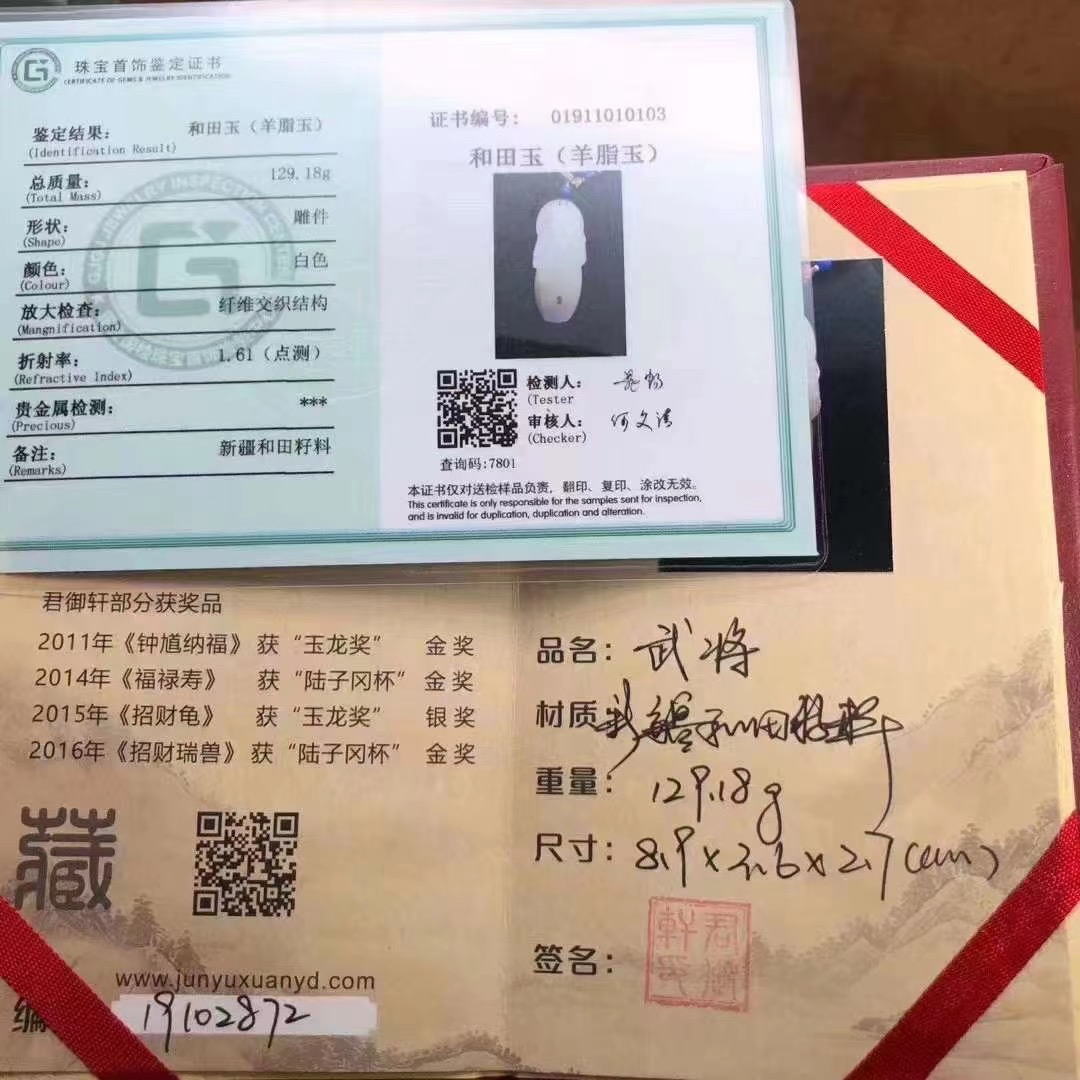 珠宝首饰鉴定证书
CERTIFICATE OF GEMS & JEWELRY IDENTIFICATION
鉴定结果： 和田玉（羊脂玉）
(Identification Result)
总质量： 129.18g
(Total Mass)
形状： 雕件
(Shape)
颜色： 白色
(Colour)
放大检查： 纤维交织结构
(Mangnification)
折射率： 1.61（点测）
(Refractive Index)
贵金属检测： ***
(Precious)
备注： 新疆和田籽料
(Remarks)
证书编号： 01911010103
和田玉（羊脂玉）
检测人：
(Tester
审核人： 何文清
(Checker)
查询码:7801
本证书仅对送检样品负责，翻印、复印、涂改无效。
This certificate is only responsible for the samples sent for inspection,
and is invalid for duplication, duplication and alteration.
君御轩部分获奖品
2011年《钟馗纳福》获“玉龙奖” 金奖
2014年《福禄寿》 获“陆子冈杯”金奖
2015年《招财龟》 获“玉龙奖” 银奖
2016年《招财瑞兽》获“陆子冈杯” 金奖
藏
www.junyuxuanyd.com
编 19102872
品名：武将
材质 新疆和田籽料
重量：129.18g
尺寸：8.9×3.6×2.7(cm)
签名：
君御
轩